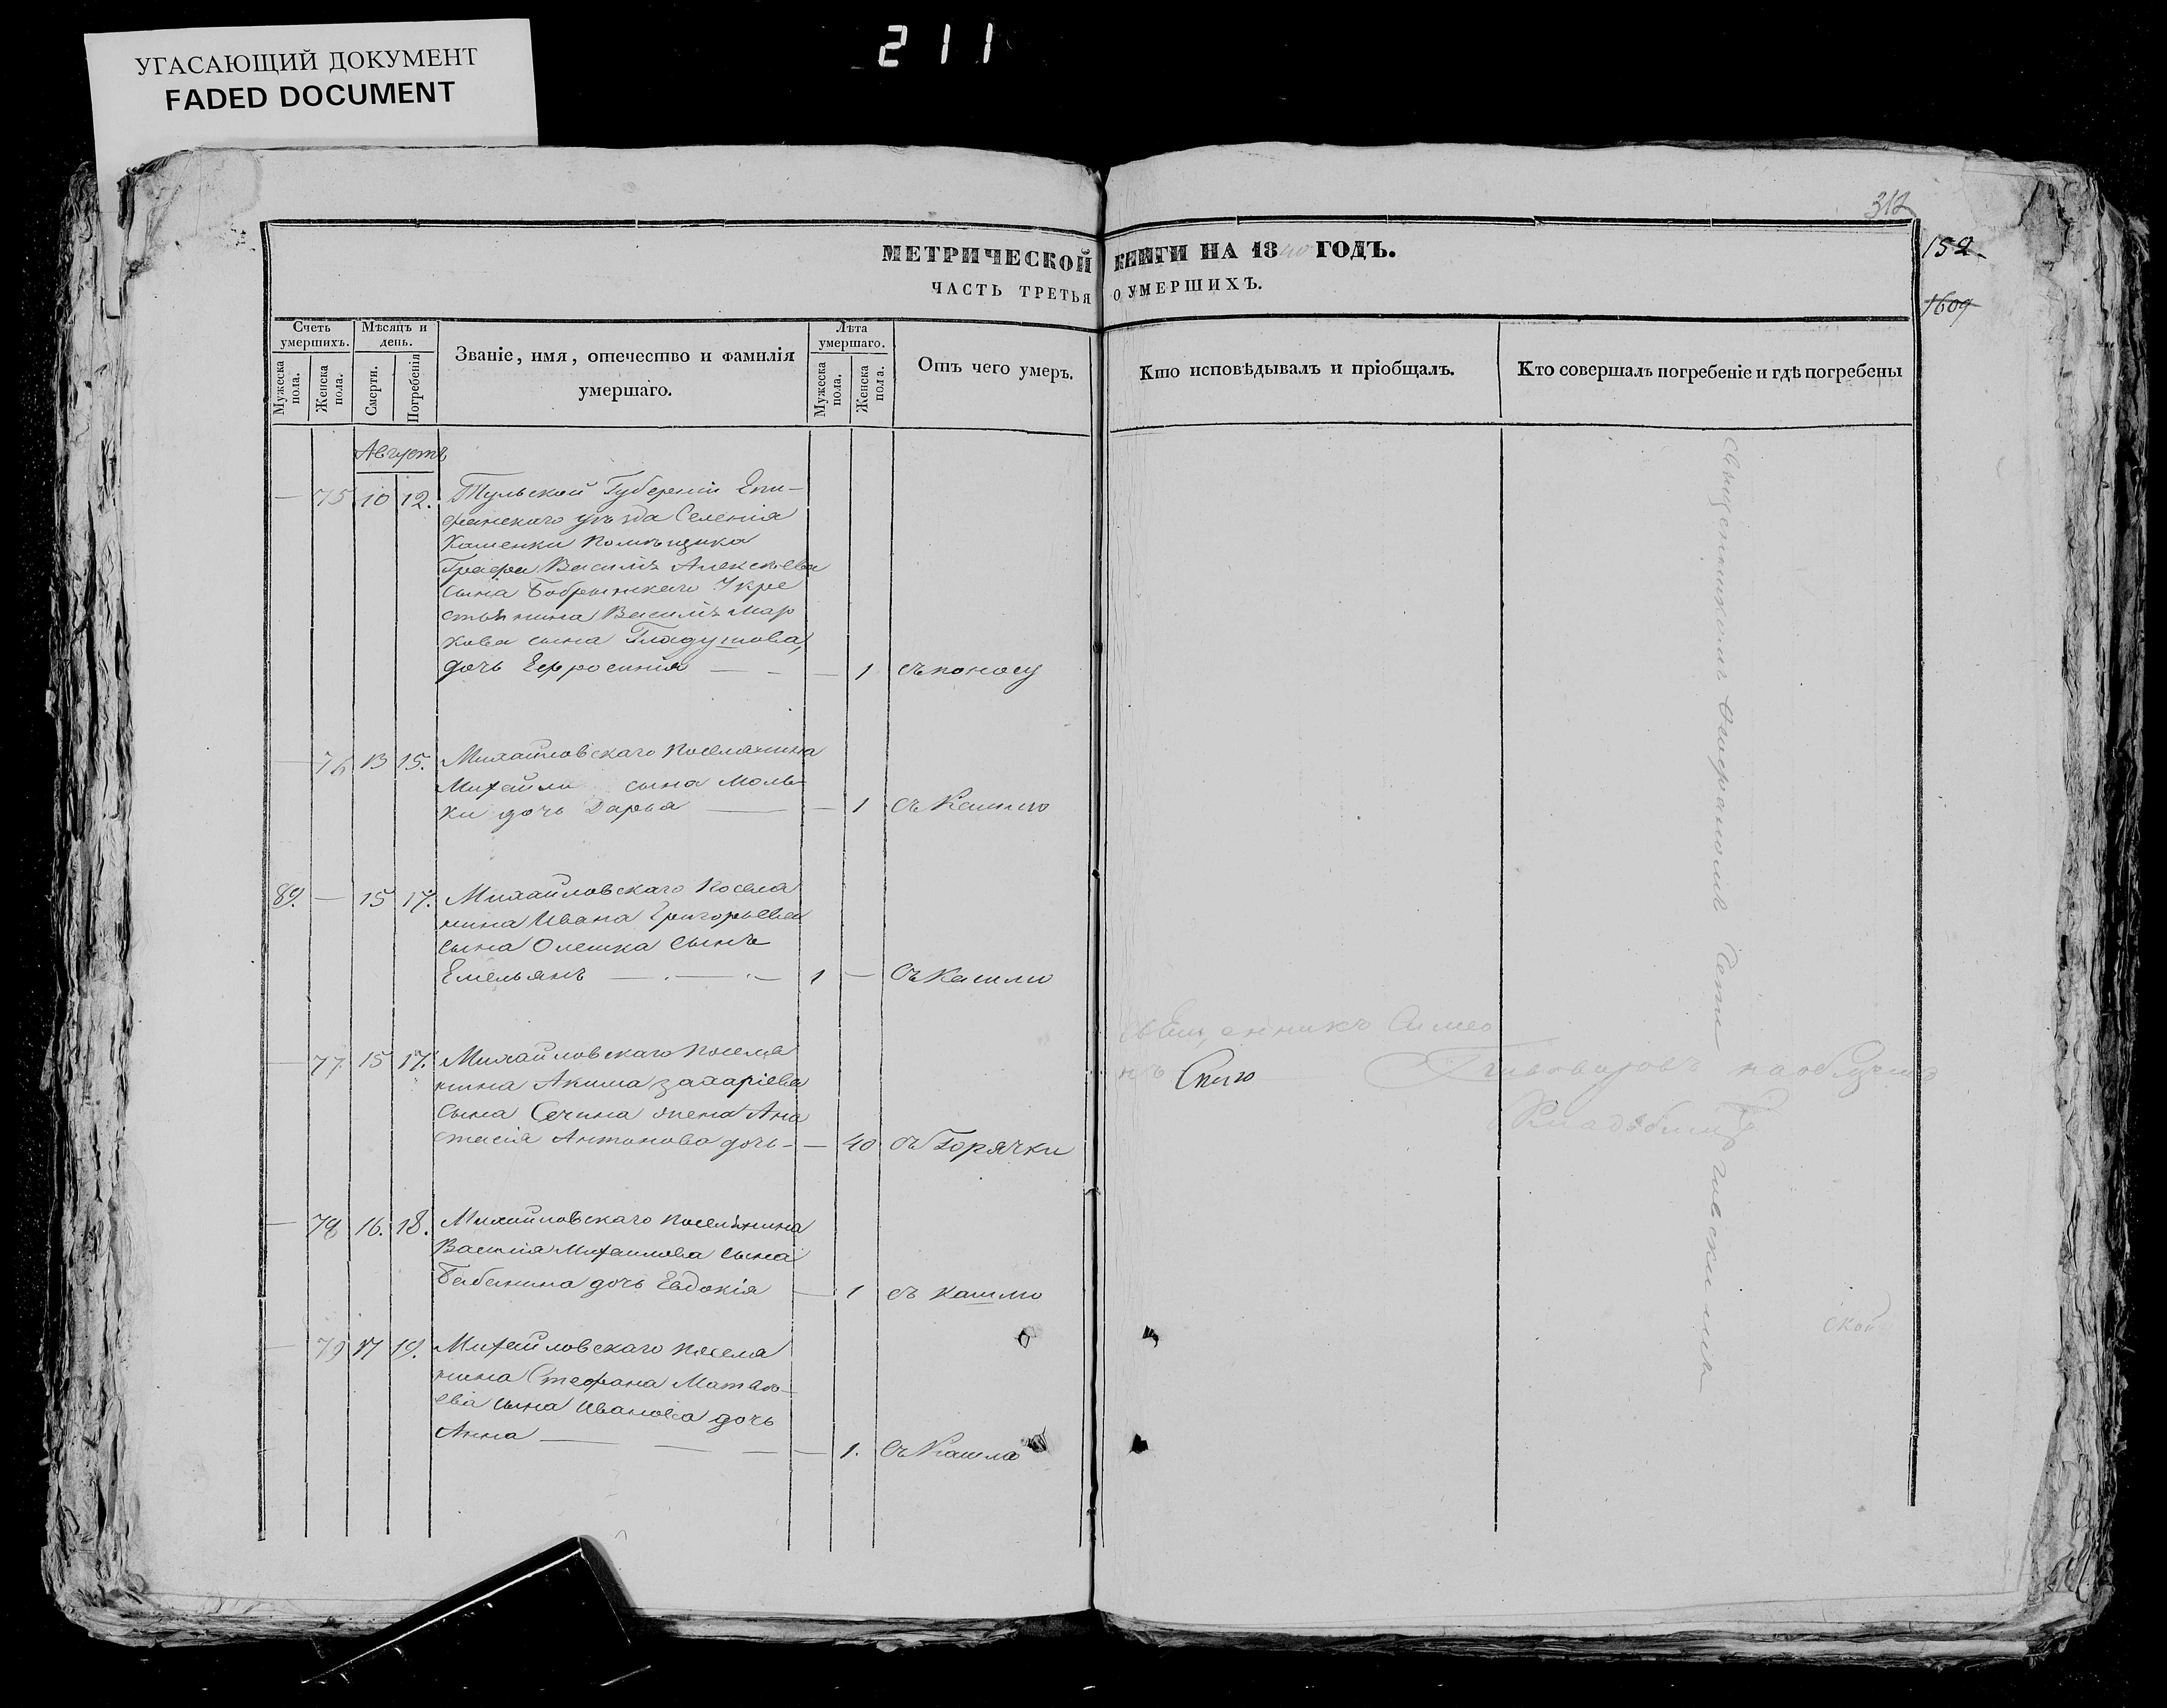 УГАСАЮЩИЙ ДОКУМЕНТ
FADED DOCUMENT
211
312
МЕТРИЧЕСКОЙ КНИГИ НА 1840 ГОДЪ.
152.
ЧАСТЬ ТРЕТЬЯ О УМЕРШИХЪ.
1609
Счетъ умершихъ.
Мужеска пола.
Женска пола.
Мѣсяцъ и день.
Смерти.
Погребенія
Званіе, имя, отечество и фамилія
умершаго.
Лѣта умершаго.
Мужеска пола.
Женска пола.
Отъ чего умеръ.
Кто исповѣдывалъ и пріобщалъ.
Кто совершалъ погребеніе и гдѣ погребены
Августъ
— 75 10 12. Тульской Губерніи Епи-
фанскаго уѣзда Селенія
Каменки помѣщика
Графа Василія Алексѣева
сына Бобринскаго
стьянина Василія Мар
кова сына Гладушова,
дочь Ефросинія — 1 съ поносу
— 76 13 15. Михайловскаго Поселянина
Михайла сына Моль-
ки дочь Дарья — 1 съ Кашлю
89. — 15 17. Михайловскаго Поселя
нина Ивана Григорьева
сына Олешка сынъ
Емельянъ — 1 — Съ Кашлю
— 77 15 17. Михайловскаго Поселя
нина Акима Захаріева
сына Сечина жена Ана
стасія Антонова дочь — — 40 съ Горячки
— 78 16. 18. Михайловскаго Поселянина
Василія Михаилова сына
Бабанина дочь Евдокія — 1 съ кашлю
— 79 17 19. Михайловскаго Поселя
нина Стефана Матвѣ-
ева сына Иванова дочь
Анна — — 1. Съ Кашлю
Священникъ Симео
нъ